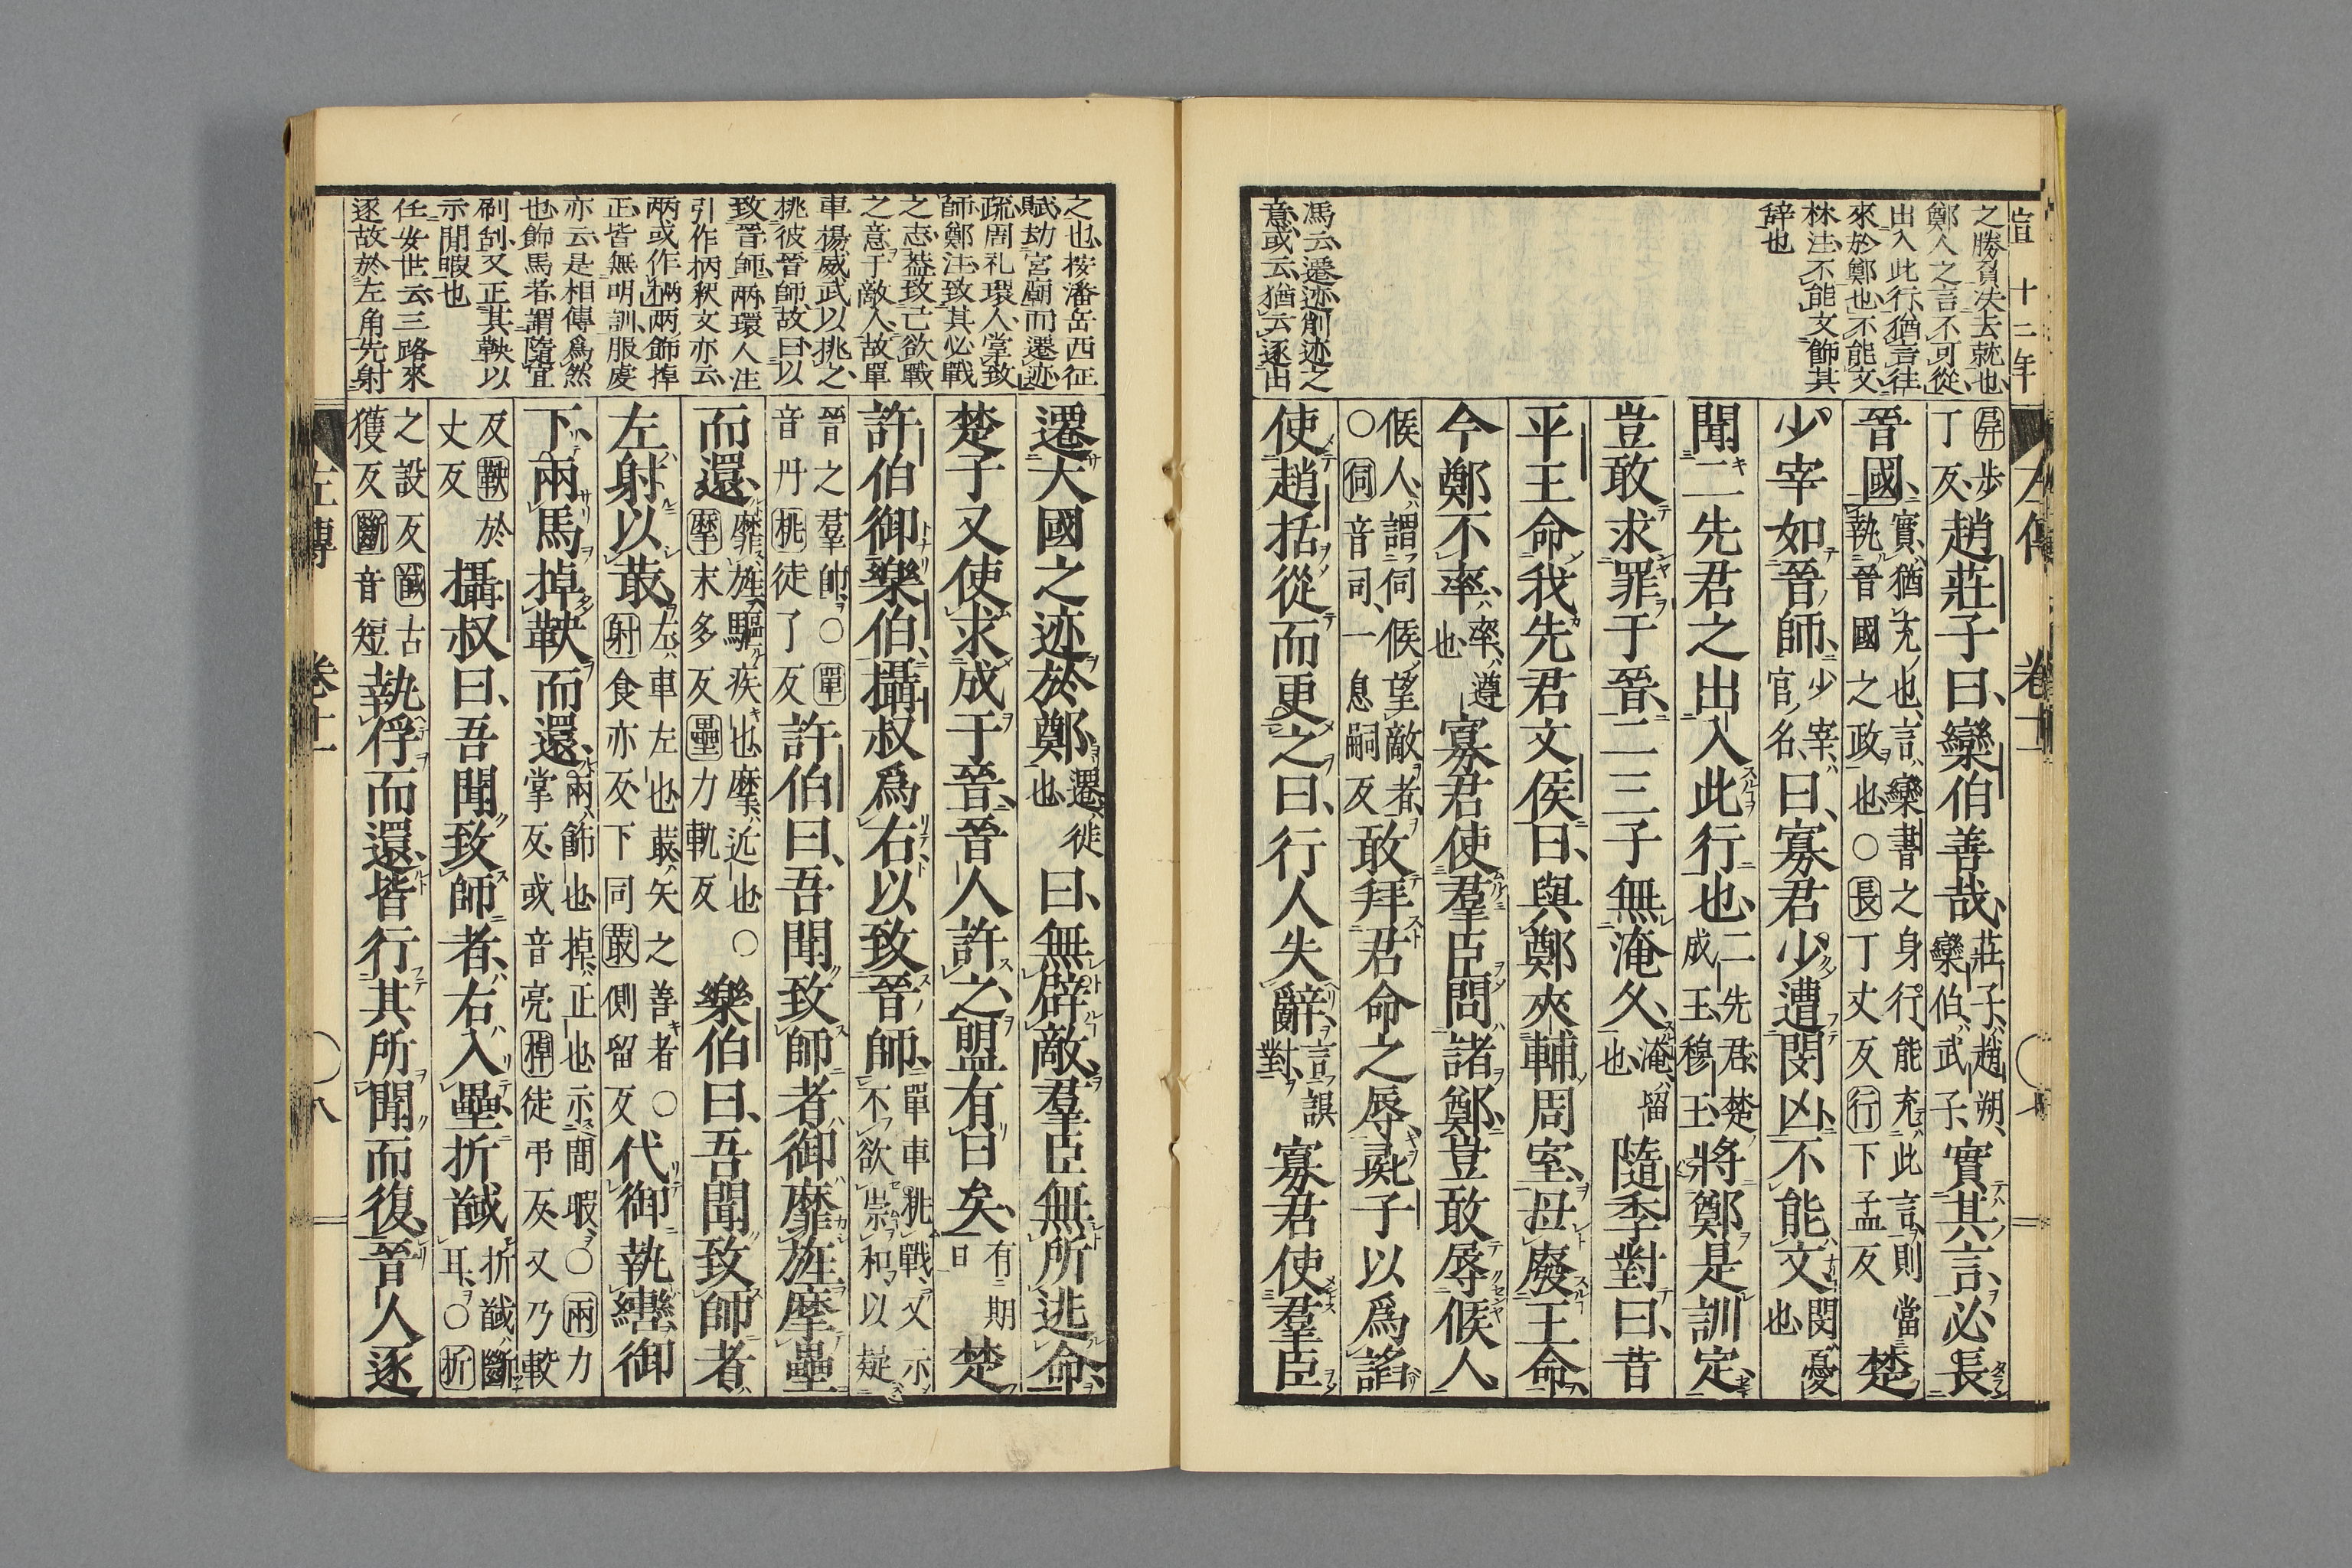 宣十二年
之勝負决去就也
鄭人之言不可從
出入此行猶言往
來於鄭也不能文
林注不能文飾其
辞也
馮云遷迹削迹之
意或云猶云逐出
左傳 卷十一
屏步丁反趙莊子曰欒伯善哉莊子趙朔欒伯武子實其言必長
晉國實猶充也言欒書之身行能充此言則當執晉國之政也○長丁丈反行下孟反楚
少宰如晉師少宰官名曰寡君少遭閔凶不能文閔憂也
聞二先君之出入此行也二先君楚成王穆王將鄭是訓定
豈敢求罪于晉二三子無淹久淹留也隨季對曰昔
平王命我先君文侯曰與鄭夾輔周室毋廢王命
今鄭不率率遵也寡君使羣臣問諸鄭豈敢辱候人
候人謂伺候望敵者○伺音司一息嗣反敢拜君命之辱彘子以爲諂
使趙括從而更之曰行人失辭言誤對寡君使羣臣
之也按潘岳西征
賦劫宮廟而遷迹
疏周礼環人掌致
師鄭注致其必戰
之志葢致己欲戰
之意于敵人故單
車揚威武以挑之
挑彼晉師故曰以
致晉師兩環人注
引作㭓釈文亦云
兩或作㭓兩飾掉
正皆無明訓服虔
亦云是相傳爲然
也飾馬者謂隨宜
刷刮又正其鞅以
示閒暇也
任安世云三路來
逐故於左角先射
遷大國之迹於鄭遷徙也曰無辟敵羣臣無所逃命
楚子又使求成于晉晉人許之盟有日矣有期日楚
許伯御樂伯攝叔爲右以致晉師單車挑戰又示不欲崇和以疑
晉之羣帥○單音丹挑徒了反許伯曰吾聞致師者御靡旌摩壘
而還靡旌驅疾也摩近也○摩末多反壘力軌反樂伯曰吾聞致師者
左射以菆左車左也菆矢之善者○射食亦反下同菆側留反代御執轡御
下兩馬掉鞅而還兩飾也掉正也示閒暇○兩力掌反或音亮掉徒弔反又乃較
反鞅於丈反攝叔曰吾聞致師者右入壘折馘折馘斷耳○折
之設反馘古獲反斷音短執俘而還皆行其所聞而復晉人逐
左傳 卷十一 八